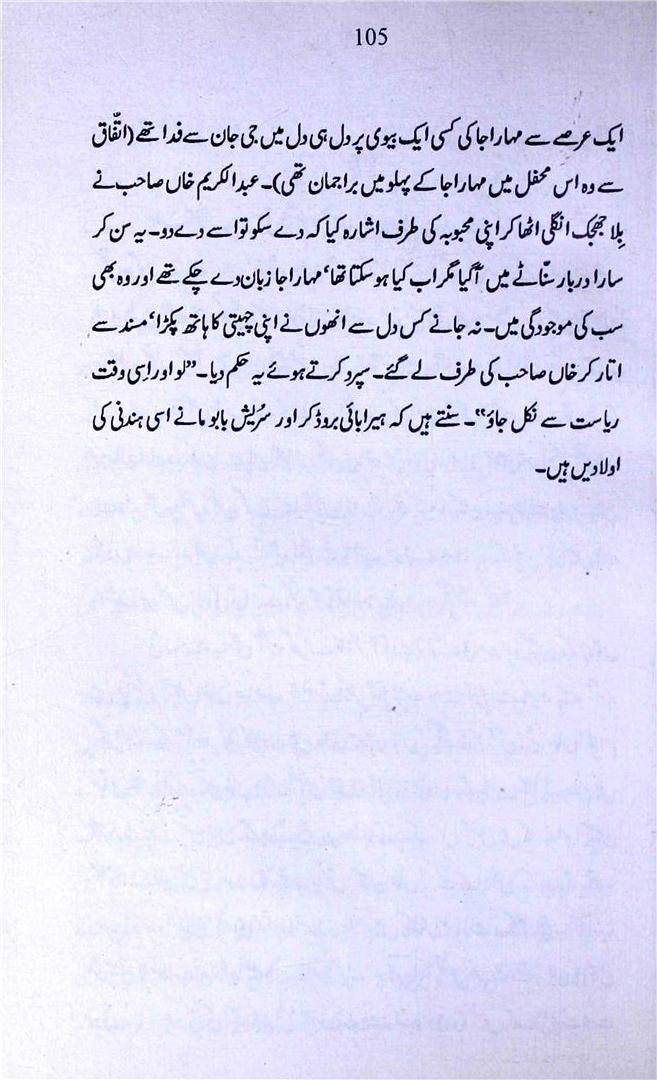 105
ایک عرصے سے مہاراجا کی کسی ایک بیوی پر دل ہی دل میں جی جان سے فدا تھے (اتفّاق
سے وہ اس محفل میں مہاراجا کے پہلو میں براجمان تھی)۔ عبدالکریم خاں صاحب نے
بِلا جھجک انگلی اٹھا کر اپنی محبوبہ کی طرف اشارہ کیا کہ دے سکو تو اسے دے دو۔ یہ سن کر
سارا دربار سنّاٹے میں آگیا مگر اب کیا ہوسکتا تھا‘ مہاراجا زبان دے چکے تھے اور وہ بھی
سب کی موجودگی میں۔ نہ جانے کس دل سے انھوں نے اپنی چہیتی کا ہاتھ پکڑا‘ مسند سے
اتار کر خاں صاحب کی طرف لے گئے۔ سپرد کرتے ہوئے یہ حکم دیا۔ ”لو اور اِسی وقت
ریاست سے نکل جاؤ“۔ سنتے ہیں کہ ہیرابائی بروڈکر اور سُریش بابو مانے اسی ہندنی کی
اولادیں ہیں۔